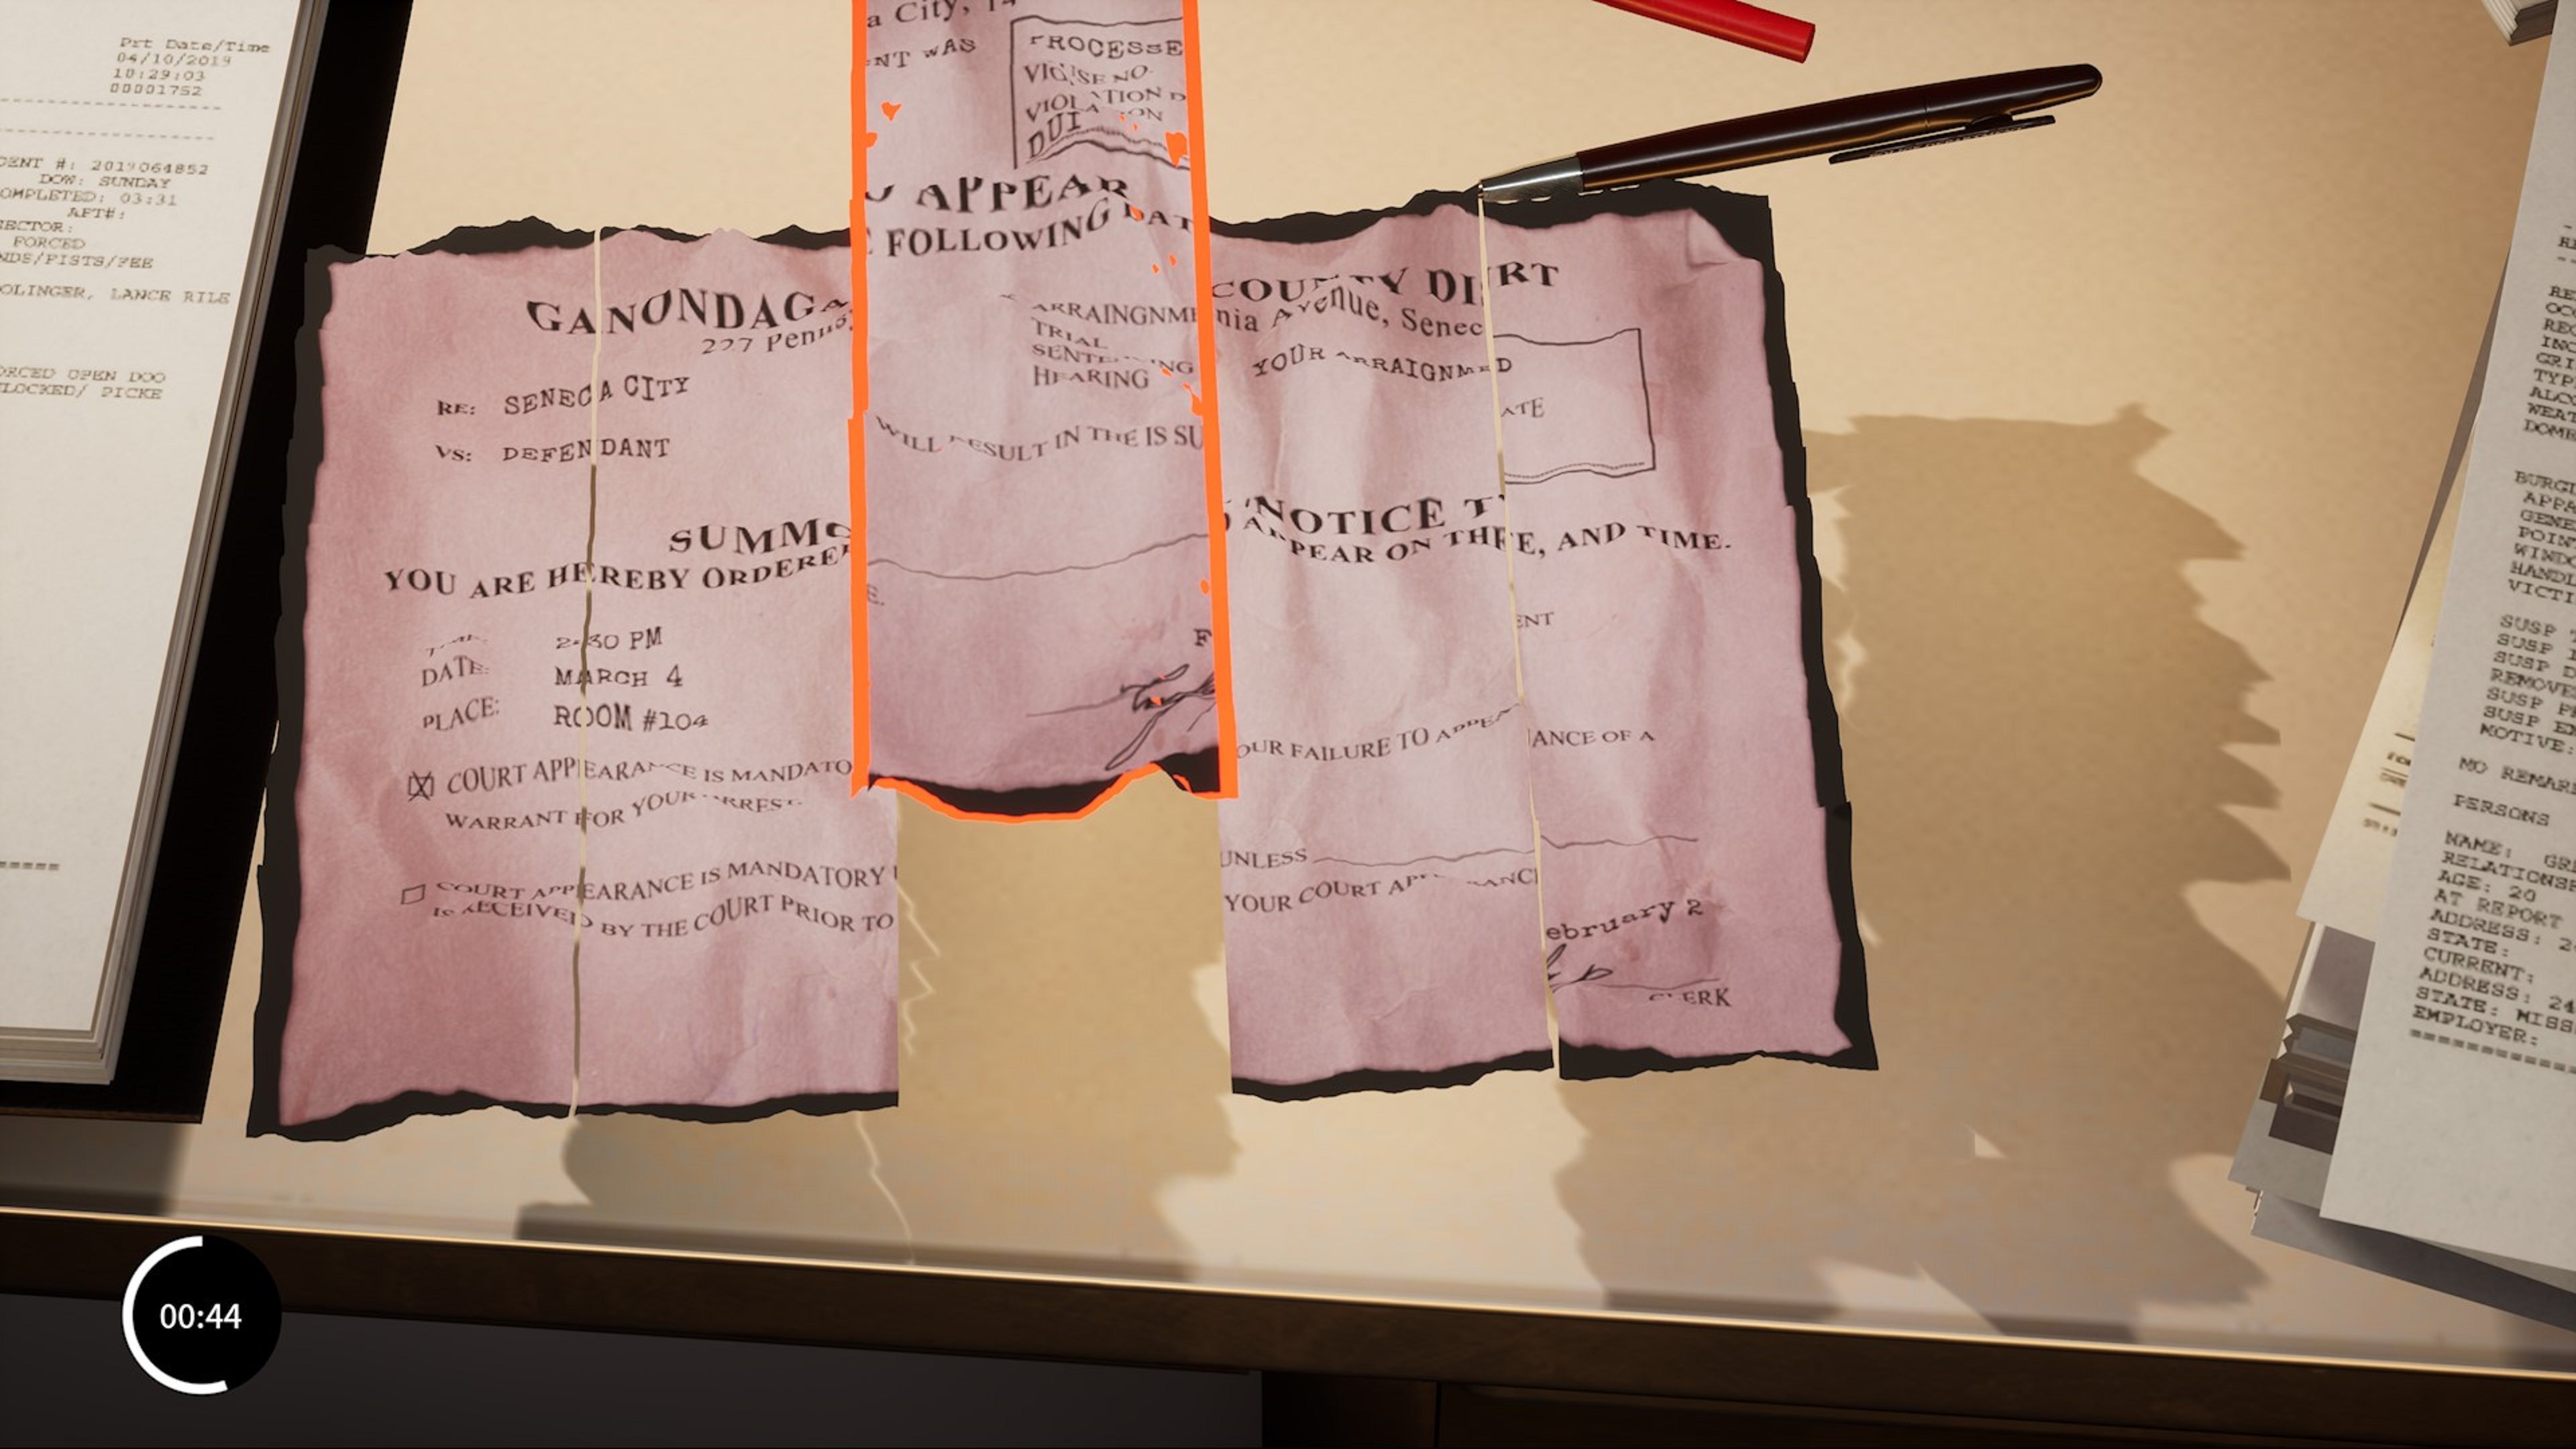 Prt Date/Time
04/10/2019
10:29:03
00001752
DENT #: 2019064852
DOW: SUNDAY
OMPLETED: 03:31
AFT#:
SECTOR:
FORCED
NDS/FISTS/FEE
OLINGER, LANCE RILE
ORCED OPEN DOO
LOCKED/ PICKE
GANONDAGA
227 Pennsy
RE: SENECA CITY
VS: DEFENDANT
SUMMO
YOU ARE HEREBY ORDERE
2:30 PM
DATE: MARCH 4
PLACE: ROOM #104
COURT APPEARANCE IS MANDATO
WARRANT FOR YOUR ARREST.
COURT APPEARANCE IS MANDATORY U
IS RECEIVED BY THE COURT PRIOR TO
a City, 14
ENT WAS
PROCESSE
VIOLATION D
VIOLATION
DUI
O APPEAR
E FOLLOWING DAT
ARRAINGNME
TRIAL
SENTENCING
HEARING
WILL RESULT IN THE IS SU
E.
F
COUNTY DI
nia Avenue, Senec
YOUR ARRAIGNM
NOTICE T
O APPEAR ON TH
OUR FAILURE TO APPEA
UNLESS
YOUR COURT APPEARANC
RT
D
ATE
E, AND TIME.
ENT
ANCE OF A
ebruary 2
CLERK
BURGL
APPA
GENE
POIN
WINDO
HANDL
VICTI
SUSP
SUSP
SUSP D
REMOVE
SUSP PR
SUSP EN
MOTIVE:
NO REMAR
PERSONS
NAME: GR
RELATIONSH
AGE: 20
AT REPORT
ADDRESS: 2
STATE:
CURRENT:
ADDRESS: 24
STATE: MISS
EMPLOYER:
00:44